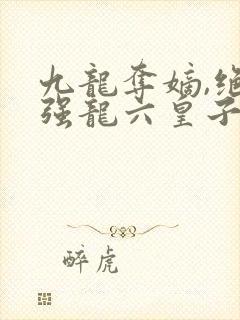 九龍奪嫡,绝
强龍六皇子
醉虎